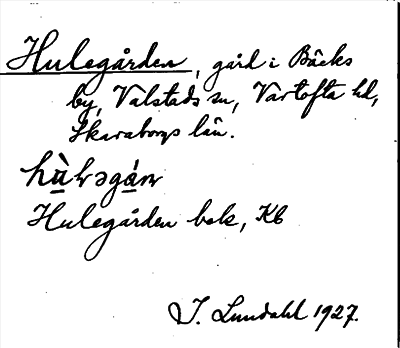 Hulegården, gård i Bäcks
by, Valstads sn, Vartofta hd,
Skaraborgs län.
Hulegården bok, Kb
I. Lundahl 1927.